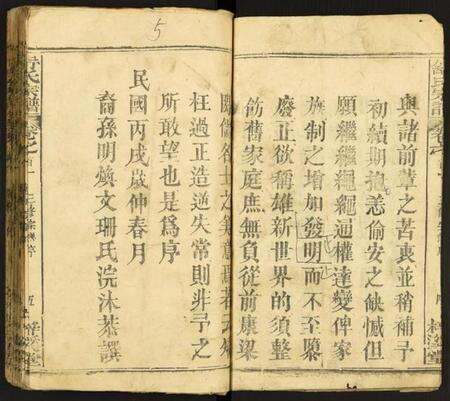 與諸前輩之苦衷並稍補予
初續期抱恙偷安之缺憾但
願繼繼繩繩通權達變俾家
族制之增加發明而不至隳
廢正欲稱雄新世界的須整
飭舊家庭庶無負從前康梁
枉過正造逆失常則非予之
所敢望也是為序
民國丙戌歲仲春月
裔孫明煥文珊氏浣沐恭譔
5